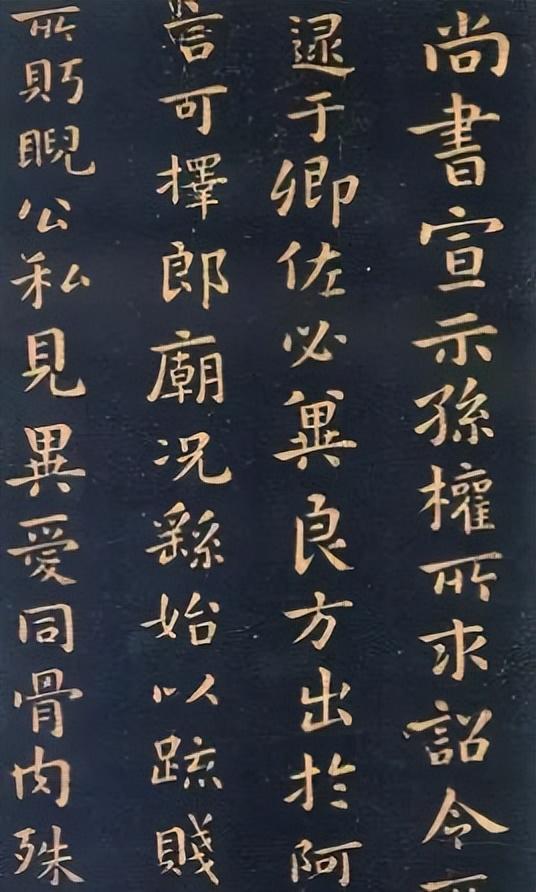 尚書宣示孫權所求詔令
逮于卿佐必冀良方出於阿
言可擇郎廟况繇始以疏賤
所眄睨公私見異愛同骨肉殊